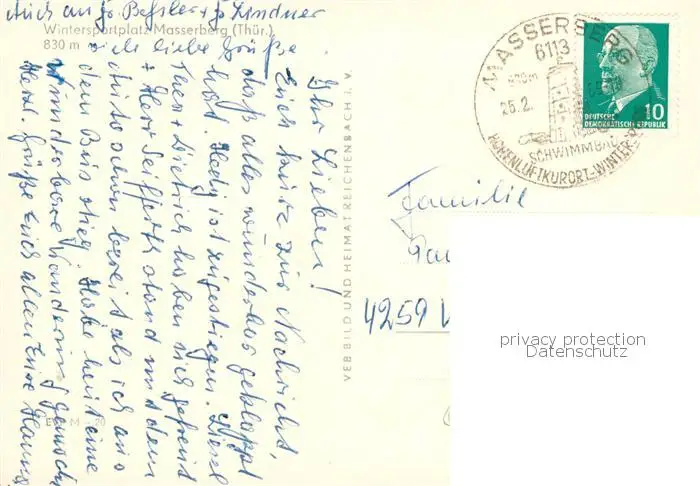 Auch an Fr. Beßler + Fr. Lindner
viele liebe Grüße.
Wintersportplatz Masserberg (Thür.)
830 m
Ihr Lieben!
Euch kurz zur Nachricht,
daß alles wunderbar geklappt
hat. Hedy ist zugestiegen. Liesel
Theo + Dietrich haben sich gefreut
+ Herr Seiffert stand mit dem
Auto schon bereit als ich aus
dem Bus stieg. Habe heut eine
wunderbare Wanderung gemacht
Herzl. Grüße Euch allen Eure Hanna
VEB BILD UND HEIMAT REICHENBACH I. V.
MASSERBERG
6113
25.2.
SCHWIMMBAD
HÖHENLUFTKURORT-WINTER
10
DEUTSCHE
DEMOKRATISCHE REPUBLIK
Familie
4259
privacy protection
Datenschutz